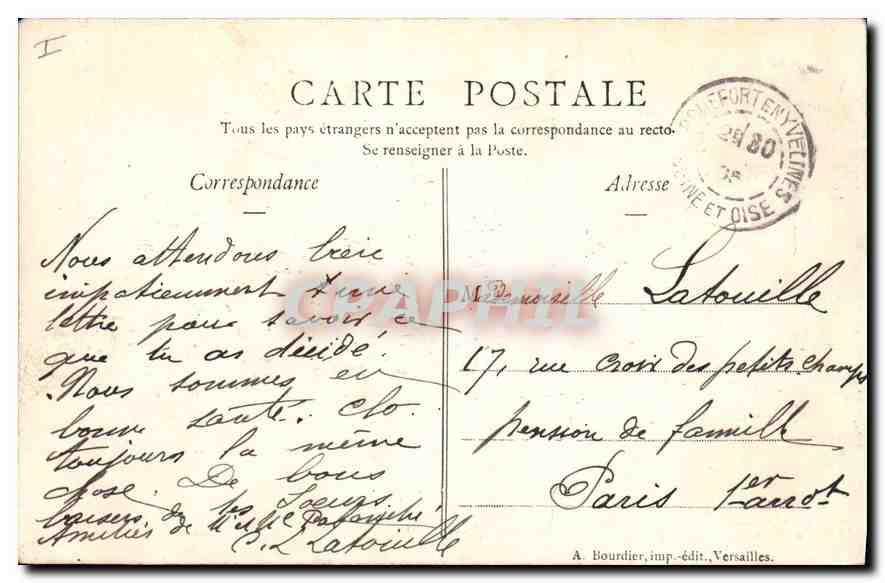 I
CARTE POSTALE
Tous les pays étrangers n'acceptent pas la correspondance au recto.
Se renseigner à la Poste.
Correspondance
Adresse
ROCHEFORT EN YVELINES
SEINE ET OISE
Nous attendons bien
impatiemment une
lettre pour savoir ce
que tu as décidé.
Nous sommes en
bonne santé. Clo
toujours la même
chose. De bons
baisers de tes soeurs
Amitiés de Mr et Me
C. L. Latouille
Mademoiselle Latouille
17, rue Croix des petits champs
pension de famille
Paris 1er arrot
A. Bourdier, imp.-édit., Versailles.
CPAPHIL